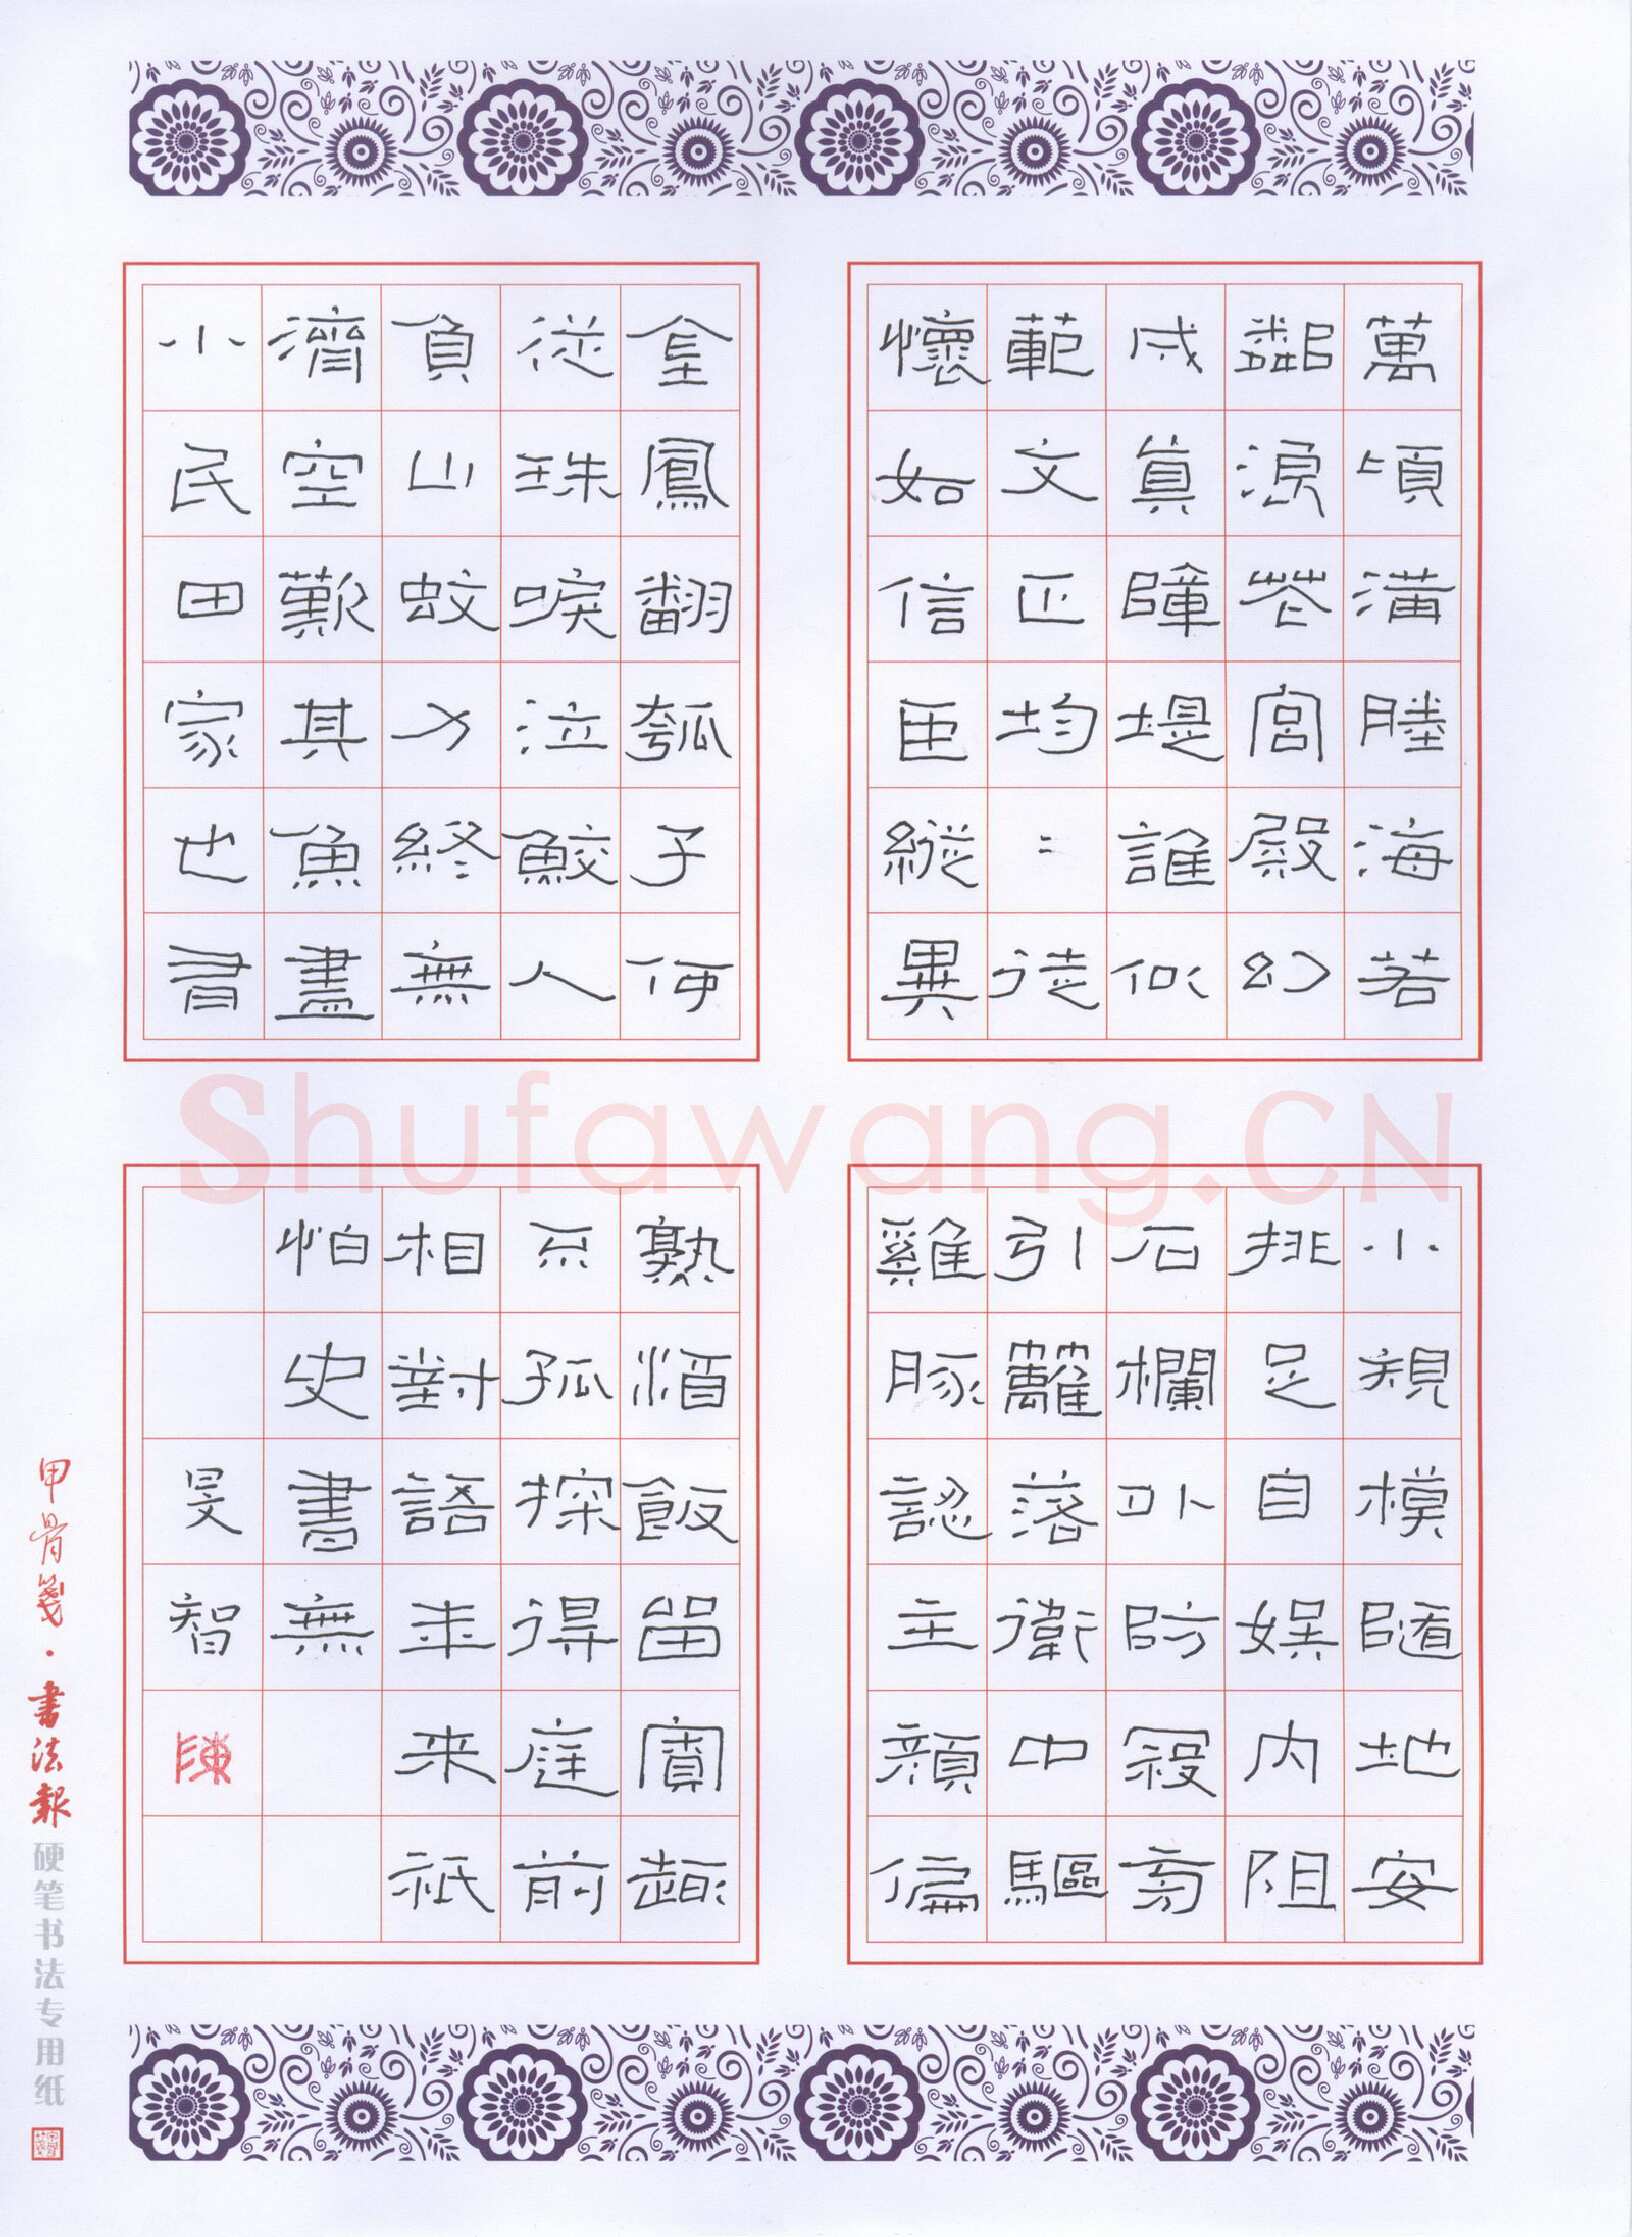 萬頃溝塍海若
鄰浪花宮殿幻
成真障堤誰似
範文正均〻徒
懷如信臣縱異
金鳳翻瓠子何
從珠唳泣鮫人
負山蚊力終無
濟空歎其魚盡
小民田家也書
Shufawang.CN
小規模隨地安
排足自娛內阻
石欄外防
引籬落衛中驅
雞豚認主顏偏
熟酒飯留賓趣
亦孤探得庭前
相對語年來祇
怕史書無
旻智
陳
甲骨箋·書法報硬笔书法专用纸